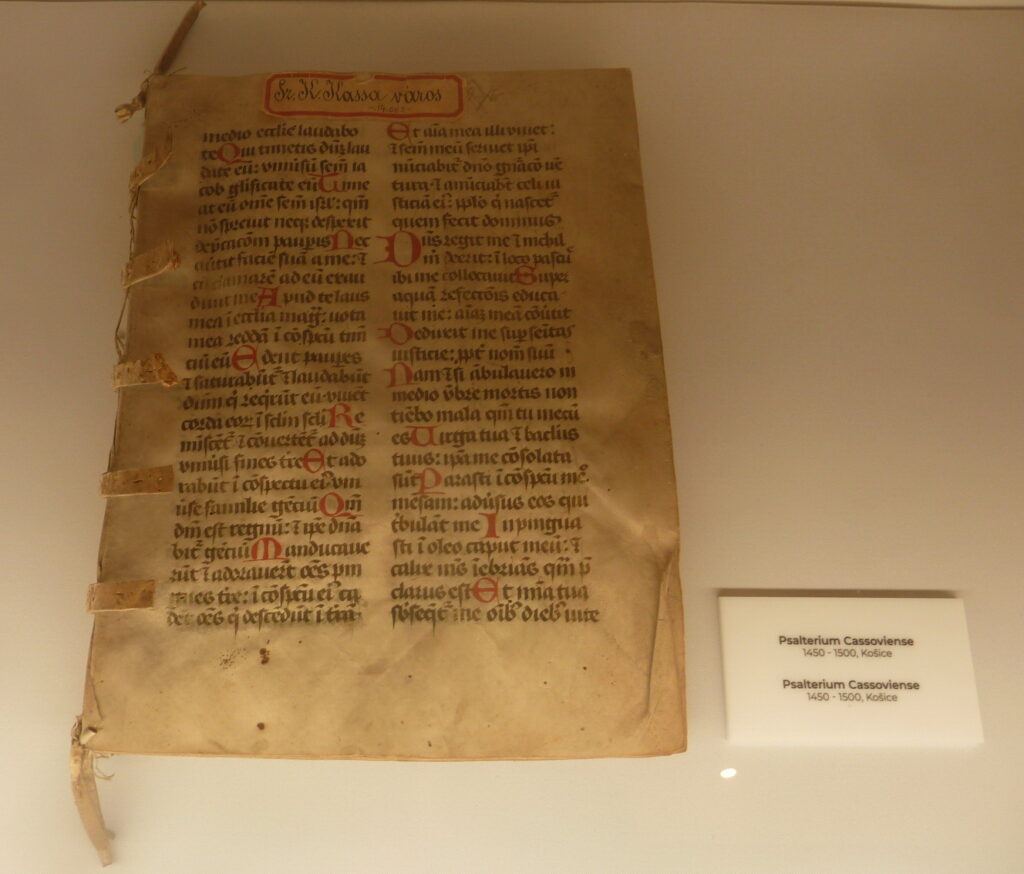 Sz. K. Kassa város
medio ecclie laudabo
te Qui timetis dūm lau
date eū: vniūsū sem̄ ia
cob glīficate eū Time
at eū om̄e sem̄ isrl: qm̄
nō spreuit necp desperit
dep̄cacōm paupis Nec
au͛tit faciē suā a me: ⁊
clamarē ad eū exau
diuit me Apud te laus
mea ī ecclia mag͛: uota
mea reddā ī cōspcu tim
ciū eū Edent paupes
⁊ saturabūt͛ ⁊ laudabūt
dnm q̄ reqrūt eū viuēt
corda eor ī sclm scli Re
miscēt͛ ⁊ cōuertēt͛ ad dūm
vniūsi fines tre Et ado
rabūt ī cōspectu ei vni
ūse familie gēciū Qm̄
dm̄ est regnū: ⁊ ipe dnā
bit͛ gēciū Manducaue
rūt ⁊ adorauerūt oēs pin
gues tre: ī cōspcu ei ca
dēt oēs q̄ descēdūt ī trā
Et aīa mea illi viuet:
⁊ sem̄ meū seruiet ip̄i
nūciabit͛ dn̄o gn̄acō uē
tura ⁊ anūciabt͛ celi iu
sticiā ei: pplo q̄ nascet͛
quem fecit dominus
Dn̄s regit me ⁊ nichil
m̄ deerit: ī loco pascu͛
ibi me collocauit Super
aquā refectōis educa
uit me: aīaꝫ meā cōu͛tit
Deduxit me sup semitas
iusticie: ppt͛ nom̄ suū
Nam ⁊ si ābulauero in
medio vmbre mortis non
timēbo mala qm̄ tu mecū
es Uirga tua ⁊ baclus
tuus: ip̄a me cōsolata
sūt Parasti ī cōspcu mē͛
mesam: adūsus eos qui
tbulāt me Inpingua
sti ī oleo caput meū: ⁊
calix mūs īebriās qm̄ p̄
clarus est Et mīa tua
sbseqt͛ me oīb dieb uite
Psalterium Cassoviense
1450 - 1500, Košice
Psalterium Cassoviense
1450 - 1500, Košice